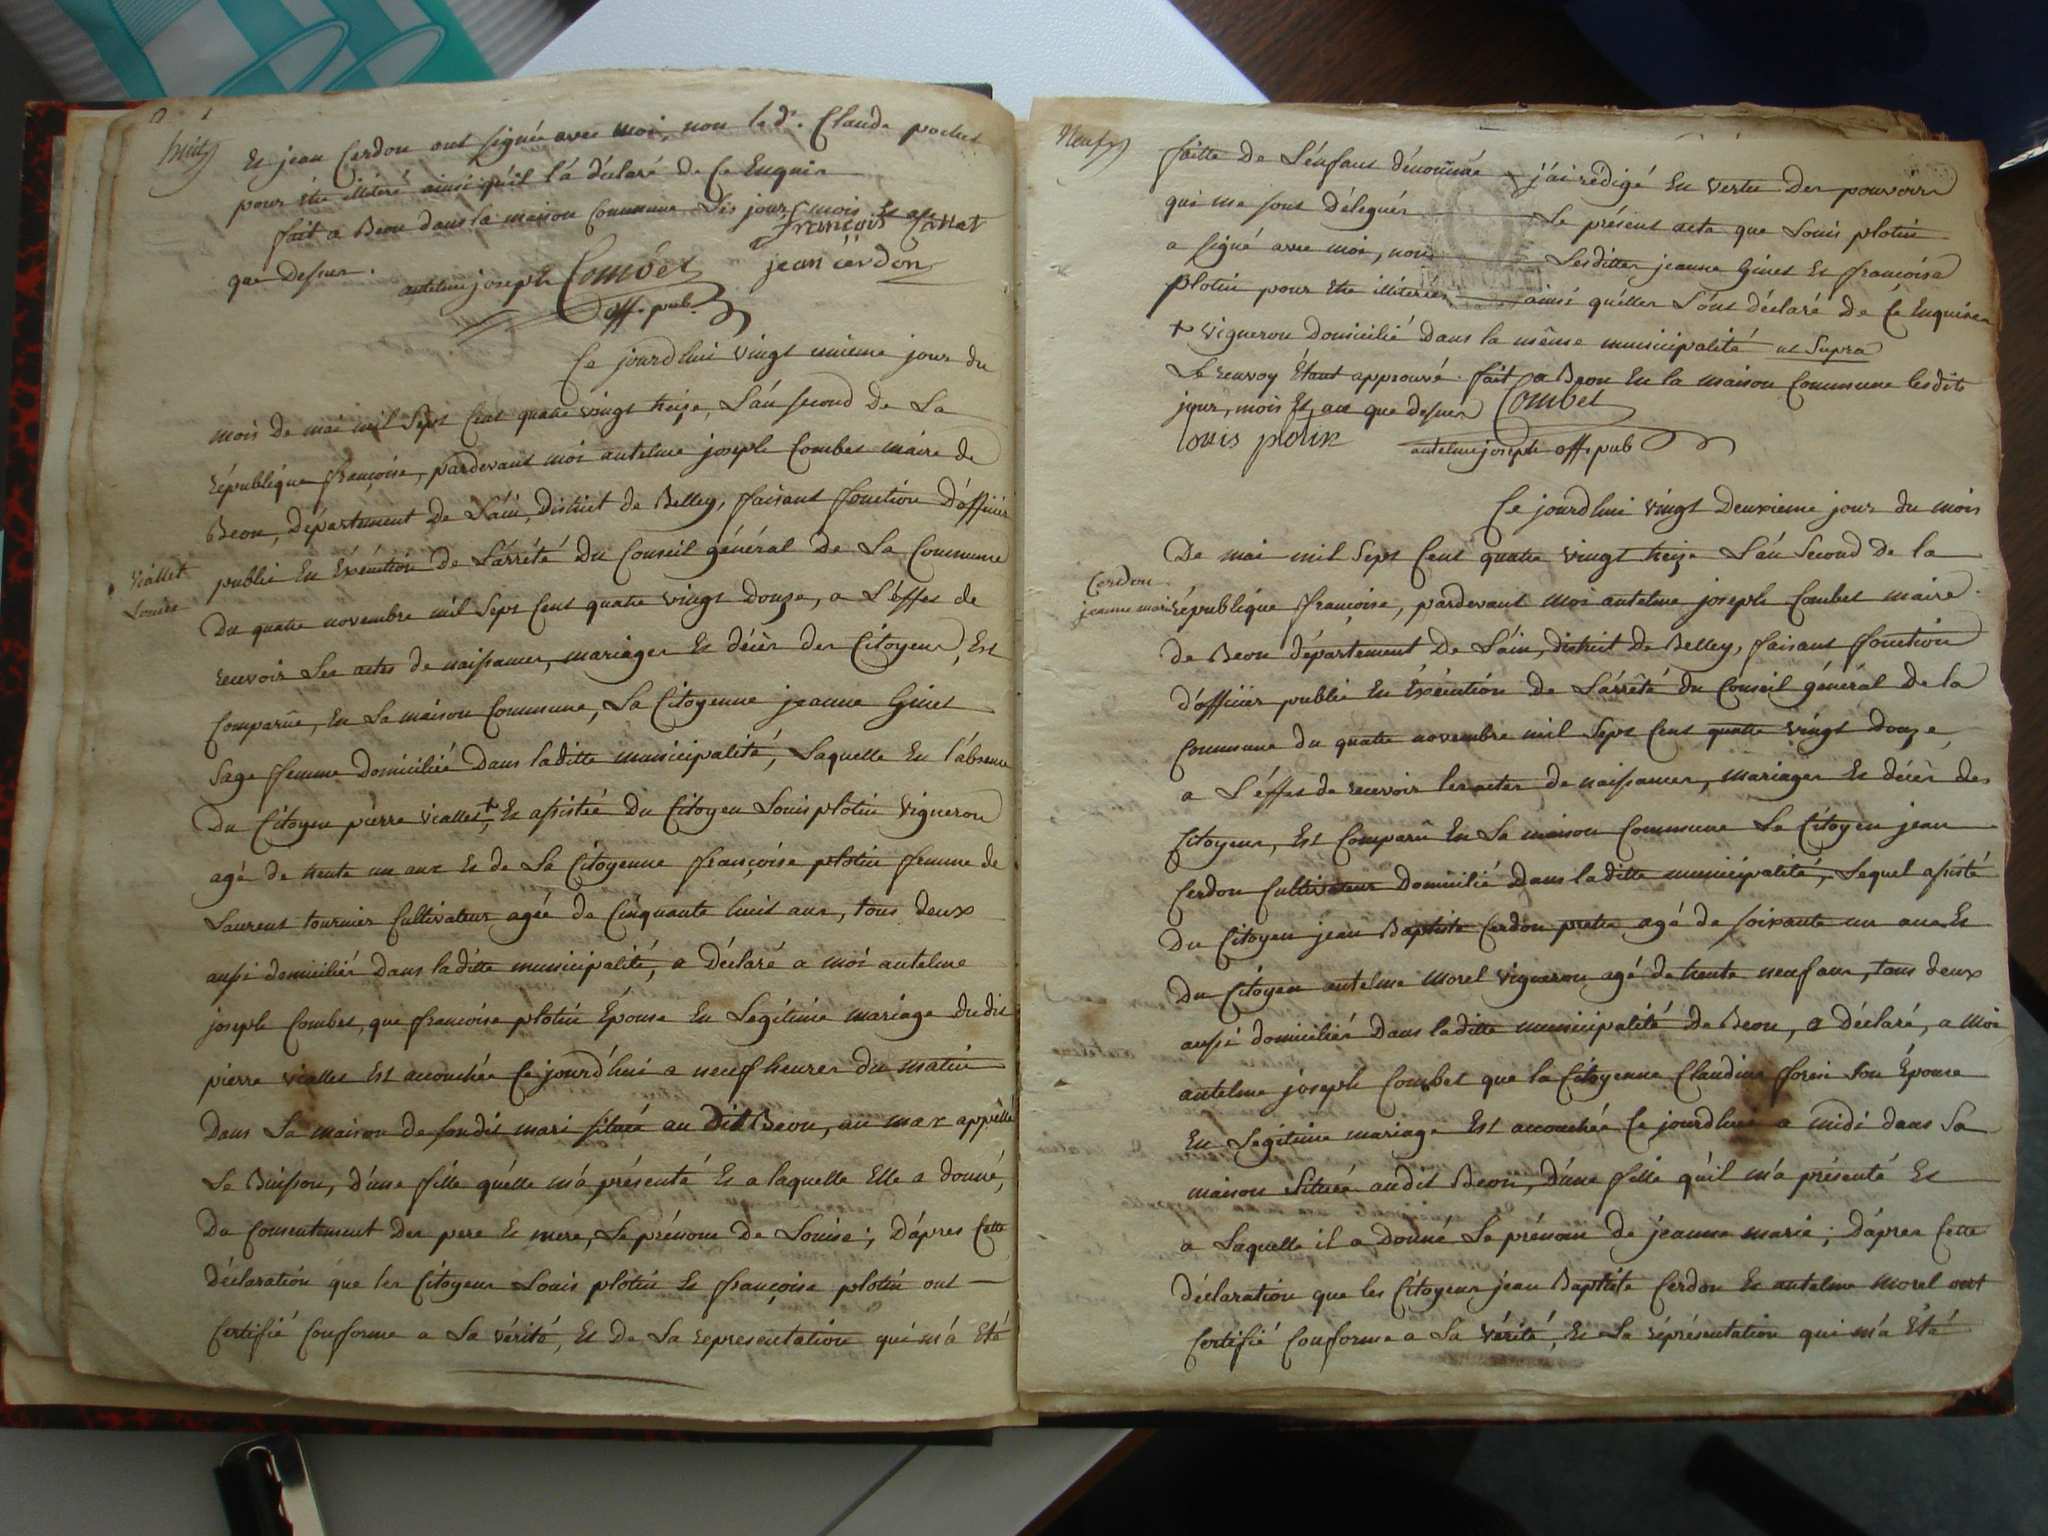 huit
Et jean Cerdon ont signé avec moi, non le d. Claude pochet
pour être illitéré ainsi qu'il l'a déclaré de ce Enquis
fait a Beon dans la maison Commune Les jour, mois Et an
que Dessus.
françois
jean cerdon
antelme joseph Combet
off. pub.
Ce jourd'hui vingt unieme jour du
mois de mai mil Sept Cent quatre vingt treize, L'an second de La
république françoise, pardevant moi antelme joseph Combet maire de
Beon, Département de L'ain, District de Belley, faisant fonction D'officier
public En Exécution de L'arrêté Du Conseil général de La Commune
Viallet
Louise
Du quatre novembre mil Sept Cent quatre vingt Douze, a L'effet de
recevoir Les actes de naissances, mariages Et décès des Citoyens, Est
Comparüe, En La maison Commune, La Citoyenne jeanne Ginet
Sage femme Domiciliée Dans laditte municipalité, Laquelle En l'absence
Du Citoyen pierre viallet +, Et assistée du Citoyen Louis plotin Vigneron
agé de trente un ans Et de La Citoyenne françoise plotin femme de
Laurent tournier Cultivateur agée de Cinquante huit ans, tous deux
aussi domiciliés Dans laditte municipalité, a Déclaré a moi antelme
joseph Combet, que françoise plotin Épouse En Légitime mariage Dudit
pierre viallet Est accouchée Ce jourd'hui a neuf heures du matin
Dans La maison de son dit mari située au Dit Beon, au mas appellé
Le Buisson, D'une fille qu'elle m'a présenté Et a laquelle Elle a donné,
Du Consentement Des pere Et mere, Le prénom de Louise; D'après Cette
Déclaration que les Citoyens Louis plotin Et françoise plotin ont
Certifié Conforme a La vérité, Et De La représentation qui m'a Eté
Neuf
faitte de L'enfant dénommé j'ai rédigé En vertu Des pouvoirs
qui me sont Délegués Le présent acte que Louis plotin
a signé avec moi, non Lesdittes jeanne Ginet Et françoise
plotin pour Etre illiterées ainsi qu'elles L'ont déclaré De Ce Enquises
+ vigneron Domicilié Dans la même municipalité ut Supra
Le renvoy Étant approuvé fait a Beon En la maison Commune lesdits
jour, mois Et an que dessus Combet
Louis plotin
antelme joseph off. pub
Ce jourd'hui vingt Deuxieme jour du mois
De mai mil Sept Cent quatre vingt treize L'an Second de la
Cerdon
jeanne marie
république françoise, pardevant moi antelme joseph Combet maire
de Beon département De L'ain, District De Belley, faisant fonction
d'officier public En Exécution de L'arrêté du Conseil général de la
Commune du quatre novembre mil Sept Cent quatre vingt Douze,
a L'effet de recevoir les actes de naissances, mariages Et décès des
Citoyens, Est Comparû En La maison Commune Le Citoyen jean
Cerdon Cultivateur Domicilié Dans laditte municipalité, Lequel assisté
Du Citoyen jean Baptiste Cerdon pretre agé de soixante un ans Et
Du Citoyen antelme Morel Vigneron agé de trente neuf ans, tous deux
aussi domiciliés Dans laditte municipalité De Beon, a Déclaré, a Moi
antelme joseph Combet que la Citoyenne Claudine son Épouse
En Légitime mariage Est accouchée Ce jourd'hui a midi dans Sa
maison Située audit Beon, D'une fille qu'il m'a présenté Et
a Laquelle il a Donné Le prénom de jeanne marie; D'après Cette
Déclaration que les Citoyens jean Baptiste Cerdon Et antelme Morel ont
Certifié Conforme a La Vérité, Et La réprésentation qui m'a Eté